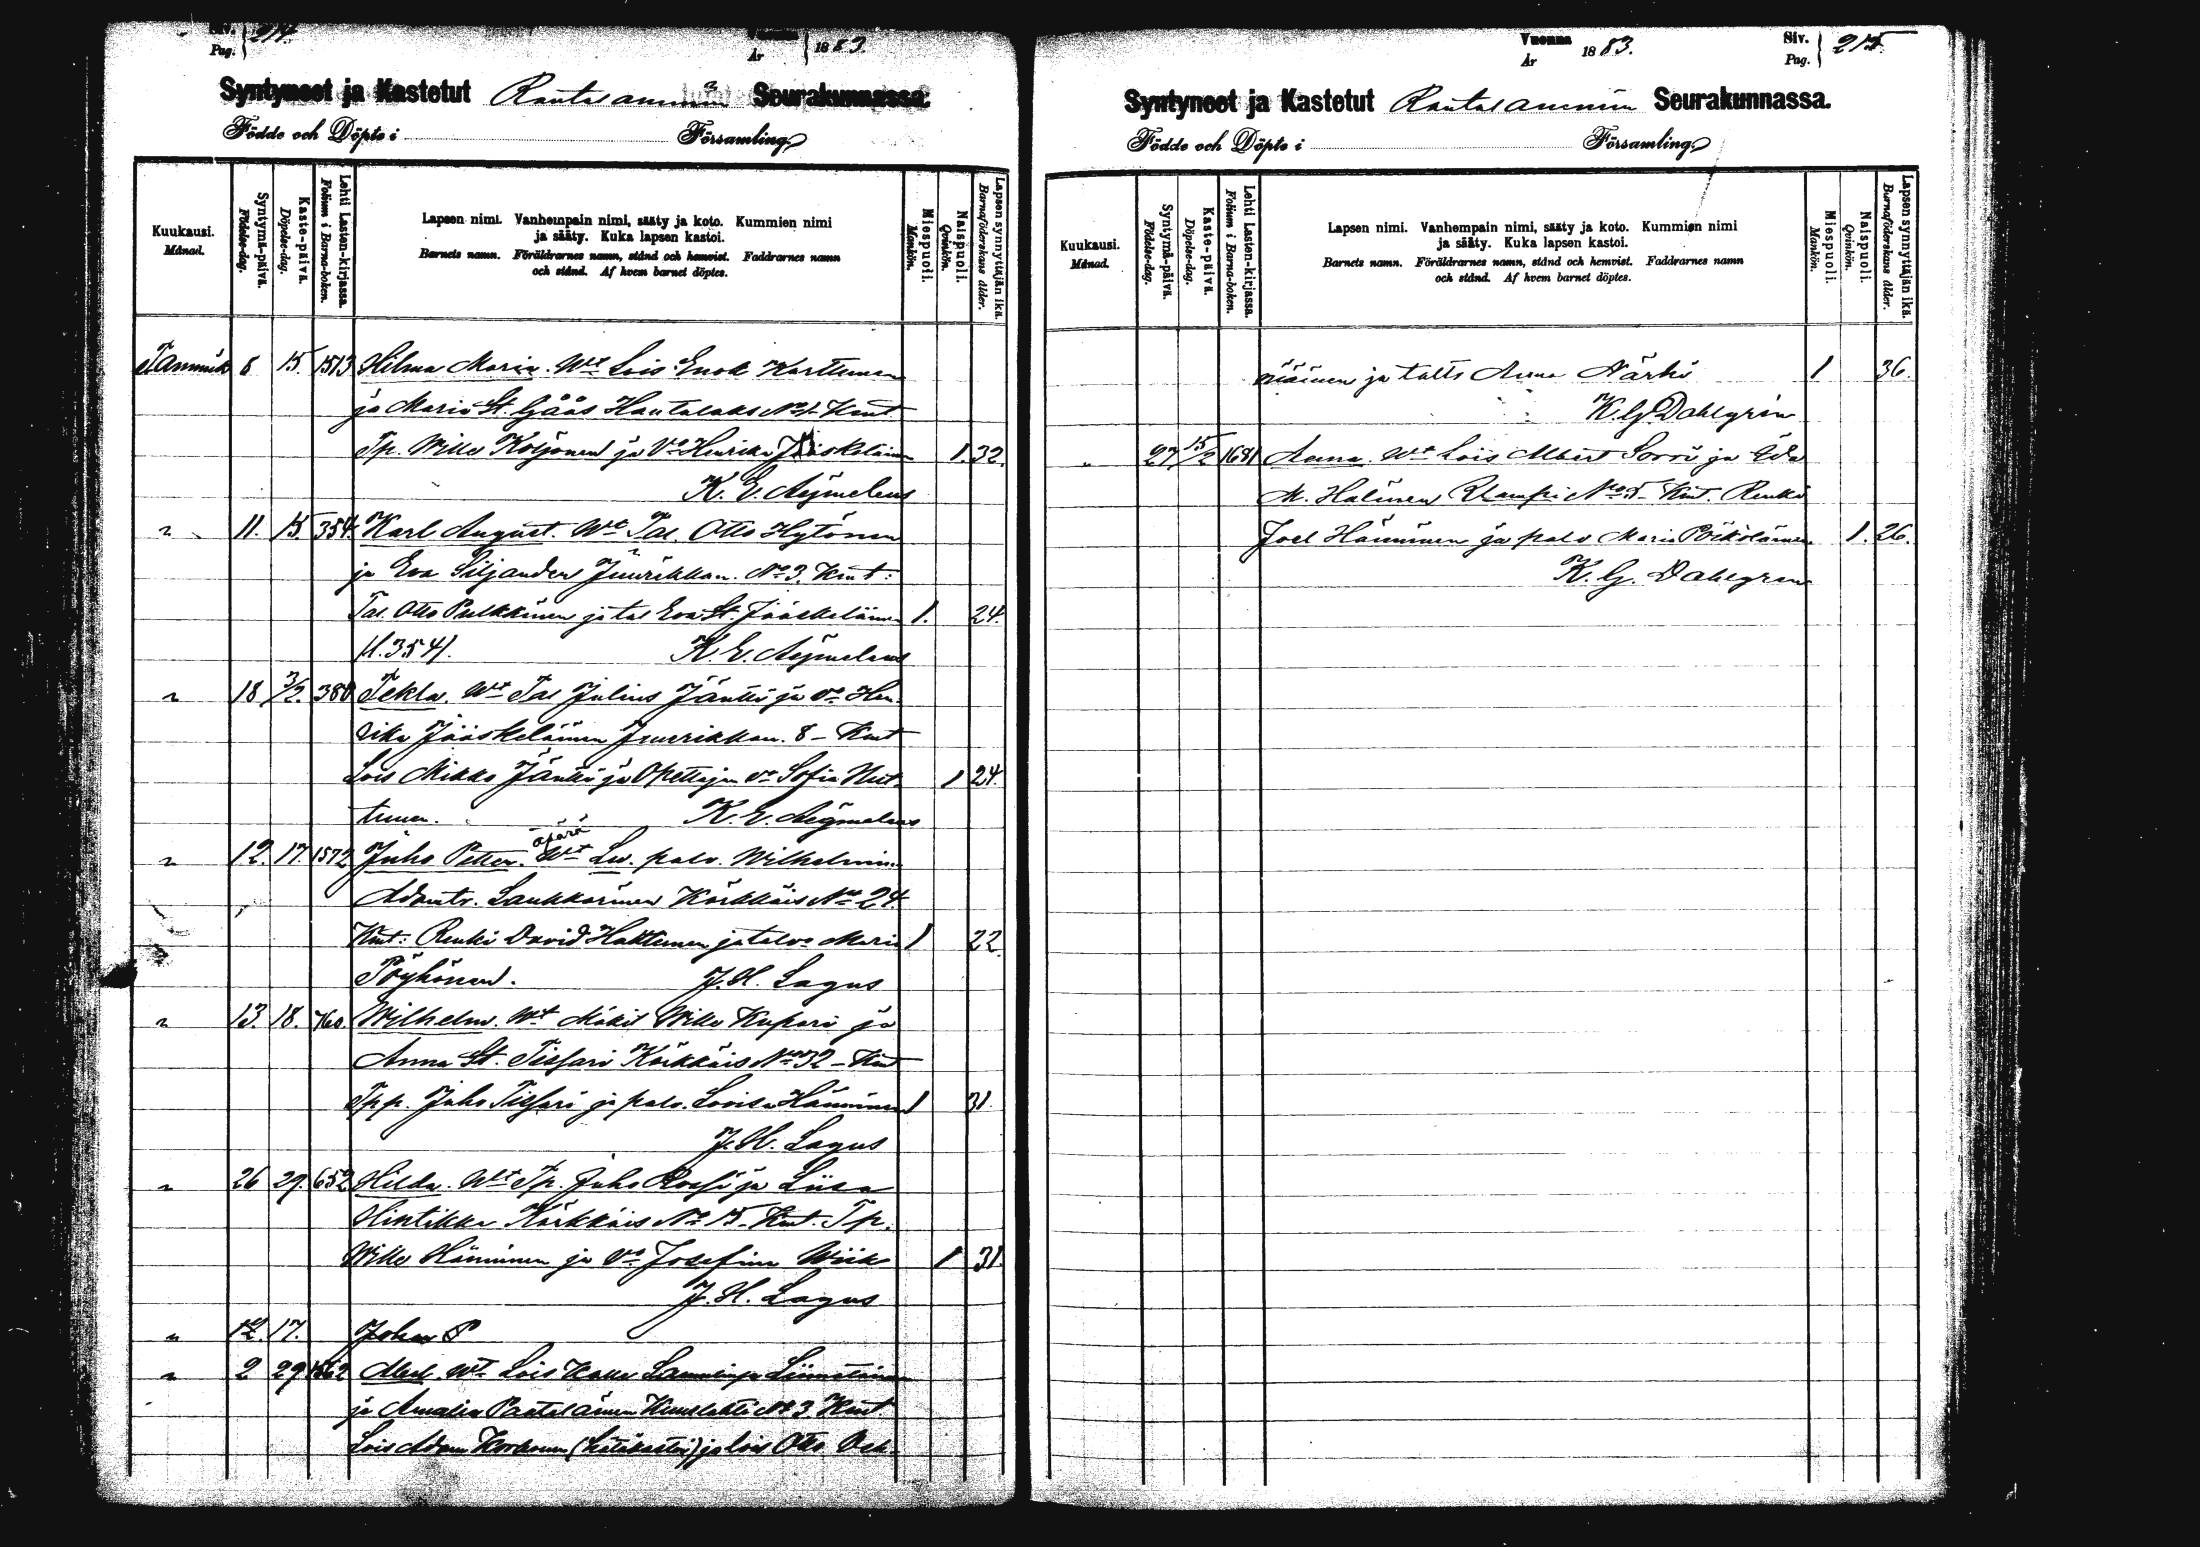 Pag. 214.
År 1883.
Syntyneet ja Kastetut Rautalammin Seurakunnassa.
Födde och Döpte i Församling
Kuukausi. Månad.
Syntymä-päivä. Födelse-dag.
Kaste-päivä. Döpelse-dag.
Lehti Lasten-kirjassa. Folium i Barna-boken.
Lapsen nimi. Vanhempain nimi, sääty ja koto. Kummien nimi
ja sääty. Kuka lapsen kastoi.
Barnets namn. Föräldrarnes namn, stånd och hemvist. Faddrarnes namn
och stånd. Af hvem barnet döptes.
Miespuoli. Mankön.
Naispuoli. Qvinkön.
Lapsen synnyttäjän ikä. Barnaföderskans ålder.
Tammik 8 15. 1513 Hilma Maria. Wt Lois Enok Karttunen
ja Maria St. Gåås Hautolaks No 4. Kmt
Tp. Wille Koljonen ja Vo Henrika Jääskeläinen 1. 32.
K. E. Aejmeleus
" 11. 15. 354. Karl August. Wt Tal. Otto Hytönen
ja Eva Siljander Juurikkam. No 3. Kmt:
Tal. Otto Pulkkinen ja tal Eva St. Jääskeläinen 1. 24.
(l. 354). K. E. Aejmeleus
" 18 3/2. 380 Tekla. Wt Tal Julius Jäntti ja vo Hen-
rika Jääskeläinen Juurikkam. 8 - Kmt
Lois Mikko Jäntti ja Opettajan vo Sofia Nut-
tunen. 1 24.
K. E. Aejmeleus
" 12. 17. 1572 Juho Petter. äpärä Wt Lw. palv. Wilhelmina
Adamtr. Laukkarinen Körkkäis No 24.
Kmt: Renki David Hakkunen ja talvo Maria 1 22.
Pöyhönen. J. H. Lagus
" 13. 18. 760. Wilhelm. Wt Mäkit Wille Kupari ja
Anna St. Tissari Körkkäis No 32 - Kmt
Tpp. Juho Tissari ja palv. Lovisa Hänninen 1 31.
J. H. Lagus
" 26 29. 652 Hilda. Wt Tp. Juho Rossi ja Liisa
Hintikka Körkkäis No 15 - Kmt. Tp.
Wille Hänninen ja Vo Josefina Wiik 1 31.
J. H. Lagus
" 12. 17. Johan P
" 2 29 1562 Abel. Wt Lois Kalle Liimatainen
ja Amalia Pautalainen No 3 Kmt.
Lois Adam Korhonen (hätäkastoi) ja lois Otto
Vuonna År 1883.
Siv. Pag. 215.
Syntyneet ja Kastetut Rautalammin Seurakunnassa.
Födde och Döpte i Församling
Kuukausi. Månad.
Syntymä-päivä. Födelse-dag.
Kaste-päivä. Döpelse-dag.
Lehti Lasten-kirjassa. Folium i Barna-boken.
Lapsen nimi. Vanhempain nimi, sääty ja koto. Kummien nimi
ja sääty. Kuka lapsen kastoi.
Barnets namn. Föräldrarnes namn, stånd och hemvist. Faddrarnes namn
och stånd. Af hvem barnet döptes.
Miespuoli. Mankön.
Naispuoli. Qvinkön.
Lapsen synnyttäjän ikä. Barnaföderskans ålder.
näinen ja talts Anna Närhi 1 36.
K. G. Dahlgren
" 27 15/2 1681 Anna. Wt Lois Albert Sorri ja Eda
M. Halinen Klampi No 5 - Kmt. Renki
Joel Hänninen ja palv Maria Pöikölainen 1. 26.
K. G. Dahlgren